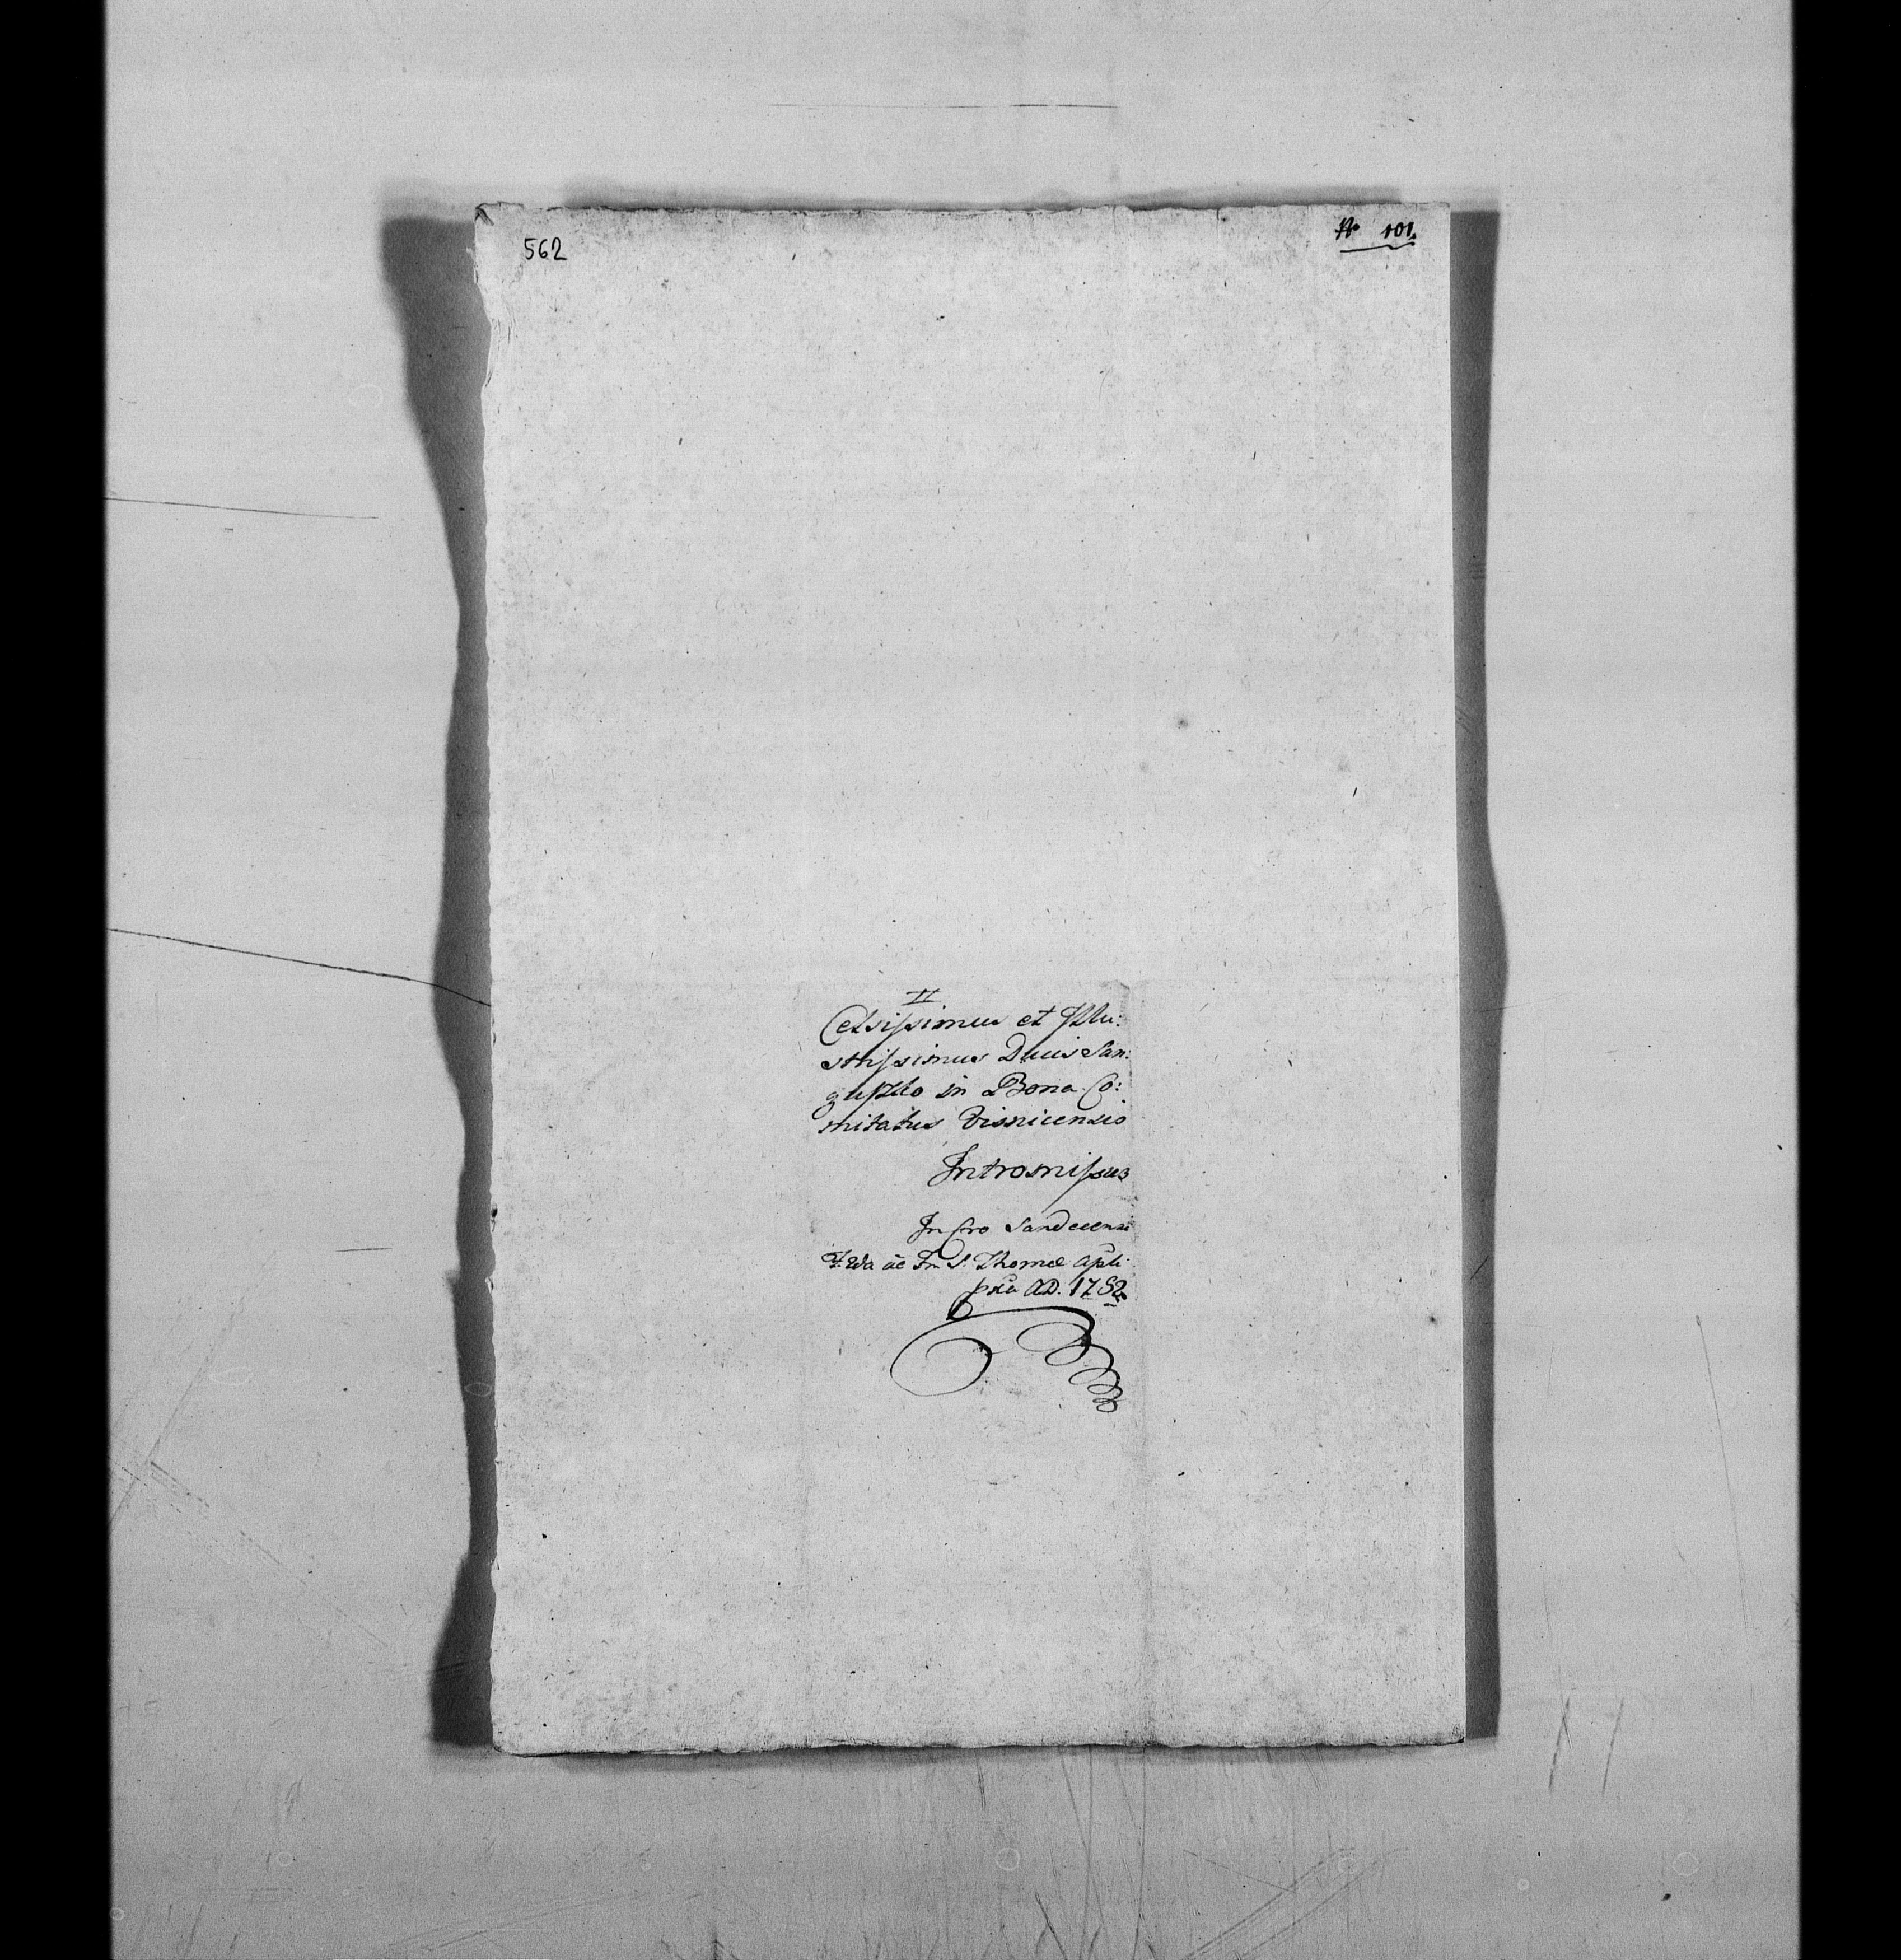 562
No 101.
II
Celsissimus et Illu:
strissimus Ducis San:
guszko in Bona Co:
mitatus Visnicensis
Intromissus
In Cro Sandecensi
F. Vda ae Fm S. Thomæ Apli
pxa AD. 1752